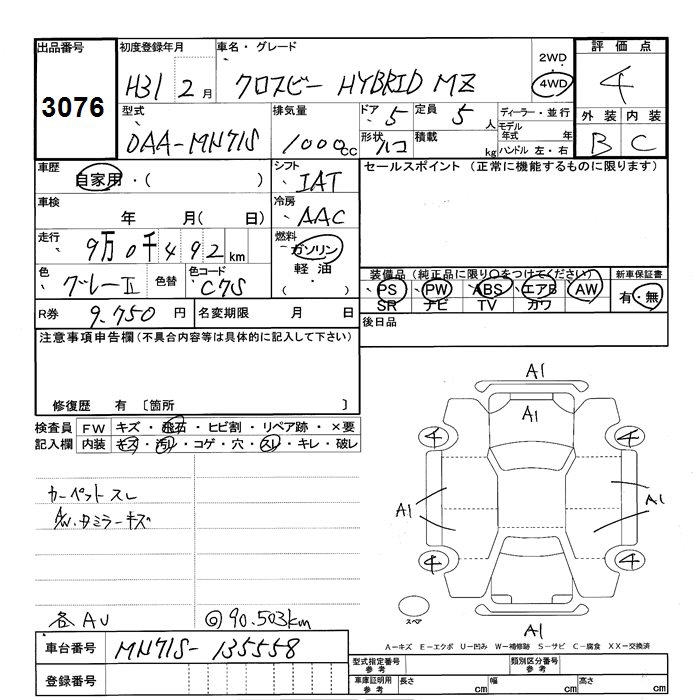 出品番号
3076
初度登録年月
H31 2 月
車名・グレード
クロスビー HYBRID MZ
2WD
4WD
評価点
4
外装 内装
B C
型式
DAA-MN71S
排気量
1000cc
ドア 5
定員 5 人
形状
積載 kg
ディーラー・並行
モデル年式 年
ハンドル 左・右
車歴
自家用・( )
シフト
IAT
セールスポイント (正常に機能するものに限ります)
車検
年 月( 日)
冷房
AAC
走行
9万0千492 km
燃料
ガソリン
軽油
( )
色
グレーII
色替
色コード
C7S
装備品 (純正品に限り○をつけてください)
PS PW ABS エアB AW
SR ナビ TV カワ
新車保証書
有・無
R券 9,750 円
名変期限 月 日
後日品
注意事項申告欄(不具合内容等は具体的に記入して下さい)
修復歴 有 〔箇所 〕
検査員記入欄
FW キズ・飛石・ヒビ割・リペア跡・×要
内装 キズ・汚レ・コゲ・穴・スレ・キレ・破レ
カーペットスレ
A/W.ドミラーキズ
各AU
@90.503km
A1
A1
4 4
A1 A1
4 4
スペア
A1
A-キズ E-エクボ U-凹み W-補修跡 S-サビ C-腐食 XX-交換済
車台番号 MN71S-135558
登録番号
型式指定番号 参考
類別区分番号 参考
車庫証明用 参考
長さ cm 幅 cm 高さ cm